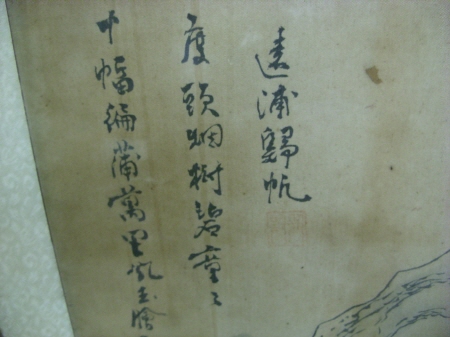 遠浦歸帆
度頭烟樹碧童〻
十幅編蒲萬里風玉膾